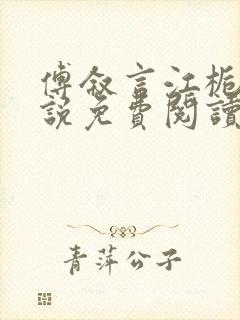 傅叙言江栀
説免費閱讀
青萍公子